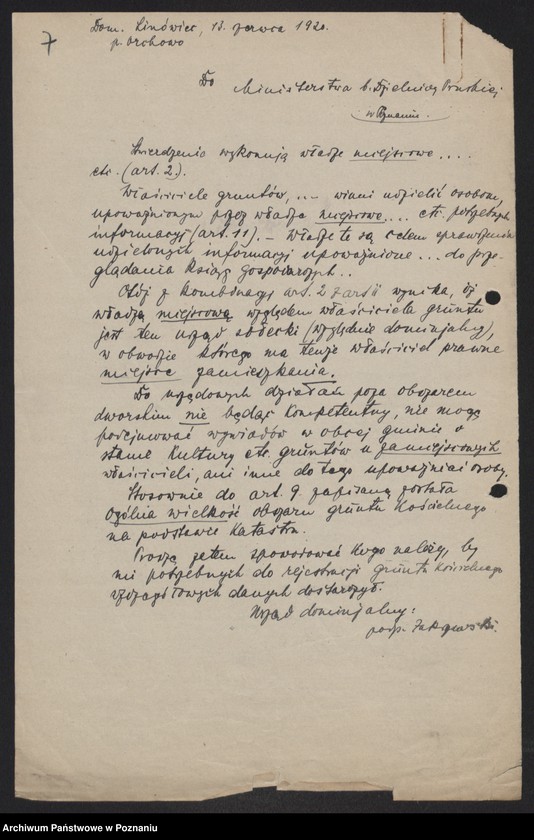 7
Dom. Linówiec, 13. czerwca 1920.
p. Orchowo
Do Ministerstwa b. Dzielnicy Pruskiej
w Poznaniu.
Stwierdzenie wykonują władze miejscowe ....
etc. (art. 2).
Właściciele gruntów, ... winni udzielić osobom,
upoważnionym przez władze miejscowe.... etc. potrzebnych
informacyj (art. 11). – Władze te są celem sprawdzenia
udzielonych informacyj upoważnione ... do prze-
glądania ksiąg gospodarczych..
Otóż z kombinacyj art. 2 z art 11 wynika, iż
władzą miejscową względem właściciela gruntu
jest ten urząd sołecki (względnie dominjalny),
w obwodzie którego ma tenże właściciel prawne
miejsce zamieszkania.
Do urzędowych działań poza obszarem
dworskim nie będąc kompetentny, nie mogę
podejmować wywiadów w obcej gminie o
stanie kultury etc. gruntów u zamiejscowych
właścicieli, ani inne do tego upoważniać osoby.
Stosownie do art. 9. zapisaną została
ogólna wielkość obszaru gruntu kościelnego
na podstawie katastru.
Proszę zatem spowodować kogo należy, by
mi potrzebnych do rejestracji gruntu kościelnego
szczegółowych danych dostarczył.
Urząd dominjalny:
podp.
Archiwum Państwowe w Poznaniu